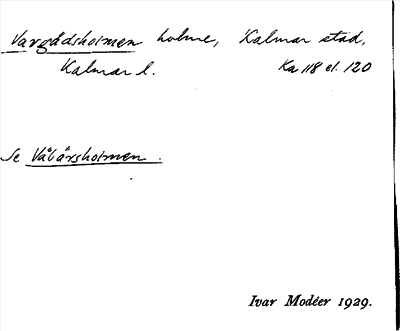 Vargådsholmen holme, Kalmar stad,
Kalmar l. Ka 118 el. 120
Se Vålårsholmen.
Ivar Modéer 1929.